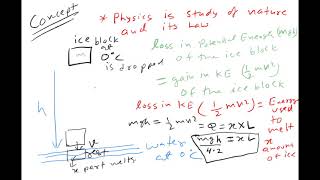 Concept
* Physics is study of nature
and its Law
ice block
m
at
0°C
is dropped
loss in Potential Energy (mgh)
of the ice block
= gain in KE (1/2 mv²)
of the ice block
loss in KE (1/2 mv²) = Energy
used
to
melt
x
amount
of ice
mgh = 1/2 mv² = Q = x × L
mgh/4.2 = xL
h
v
rest
x part melts
water
at 0°C